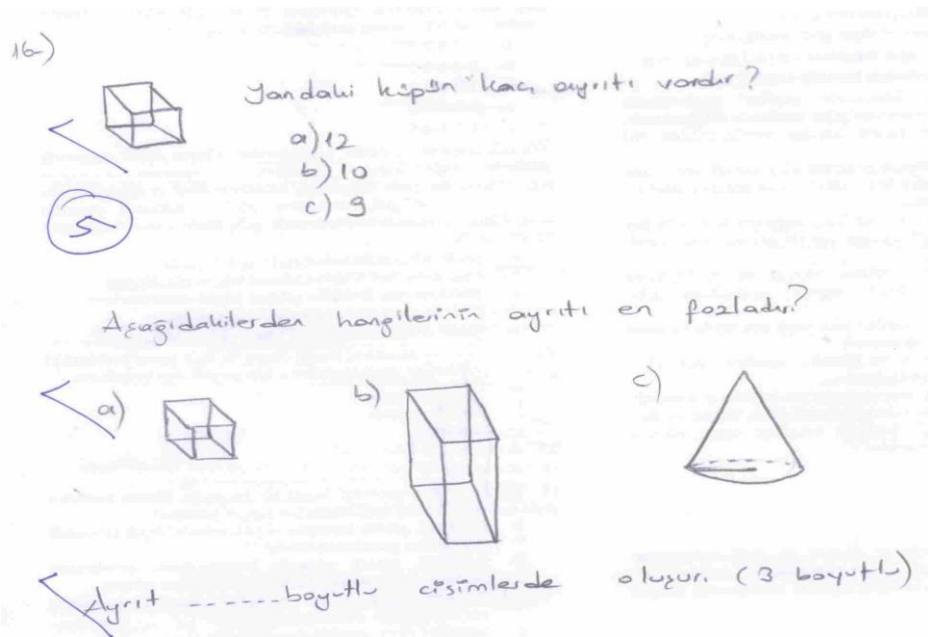 16-)
Yandaki küpün kaç ayrıtı vardır?
a) 12
b) 10
c) 9
5
Aşağıdakilerden hangilerinin ayrıtı en fazladır?
a) b) c)
Ayrıt ------boyutlu cisimlerde oluşur. (3 boyutlu)